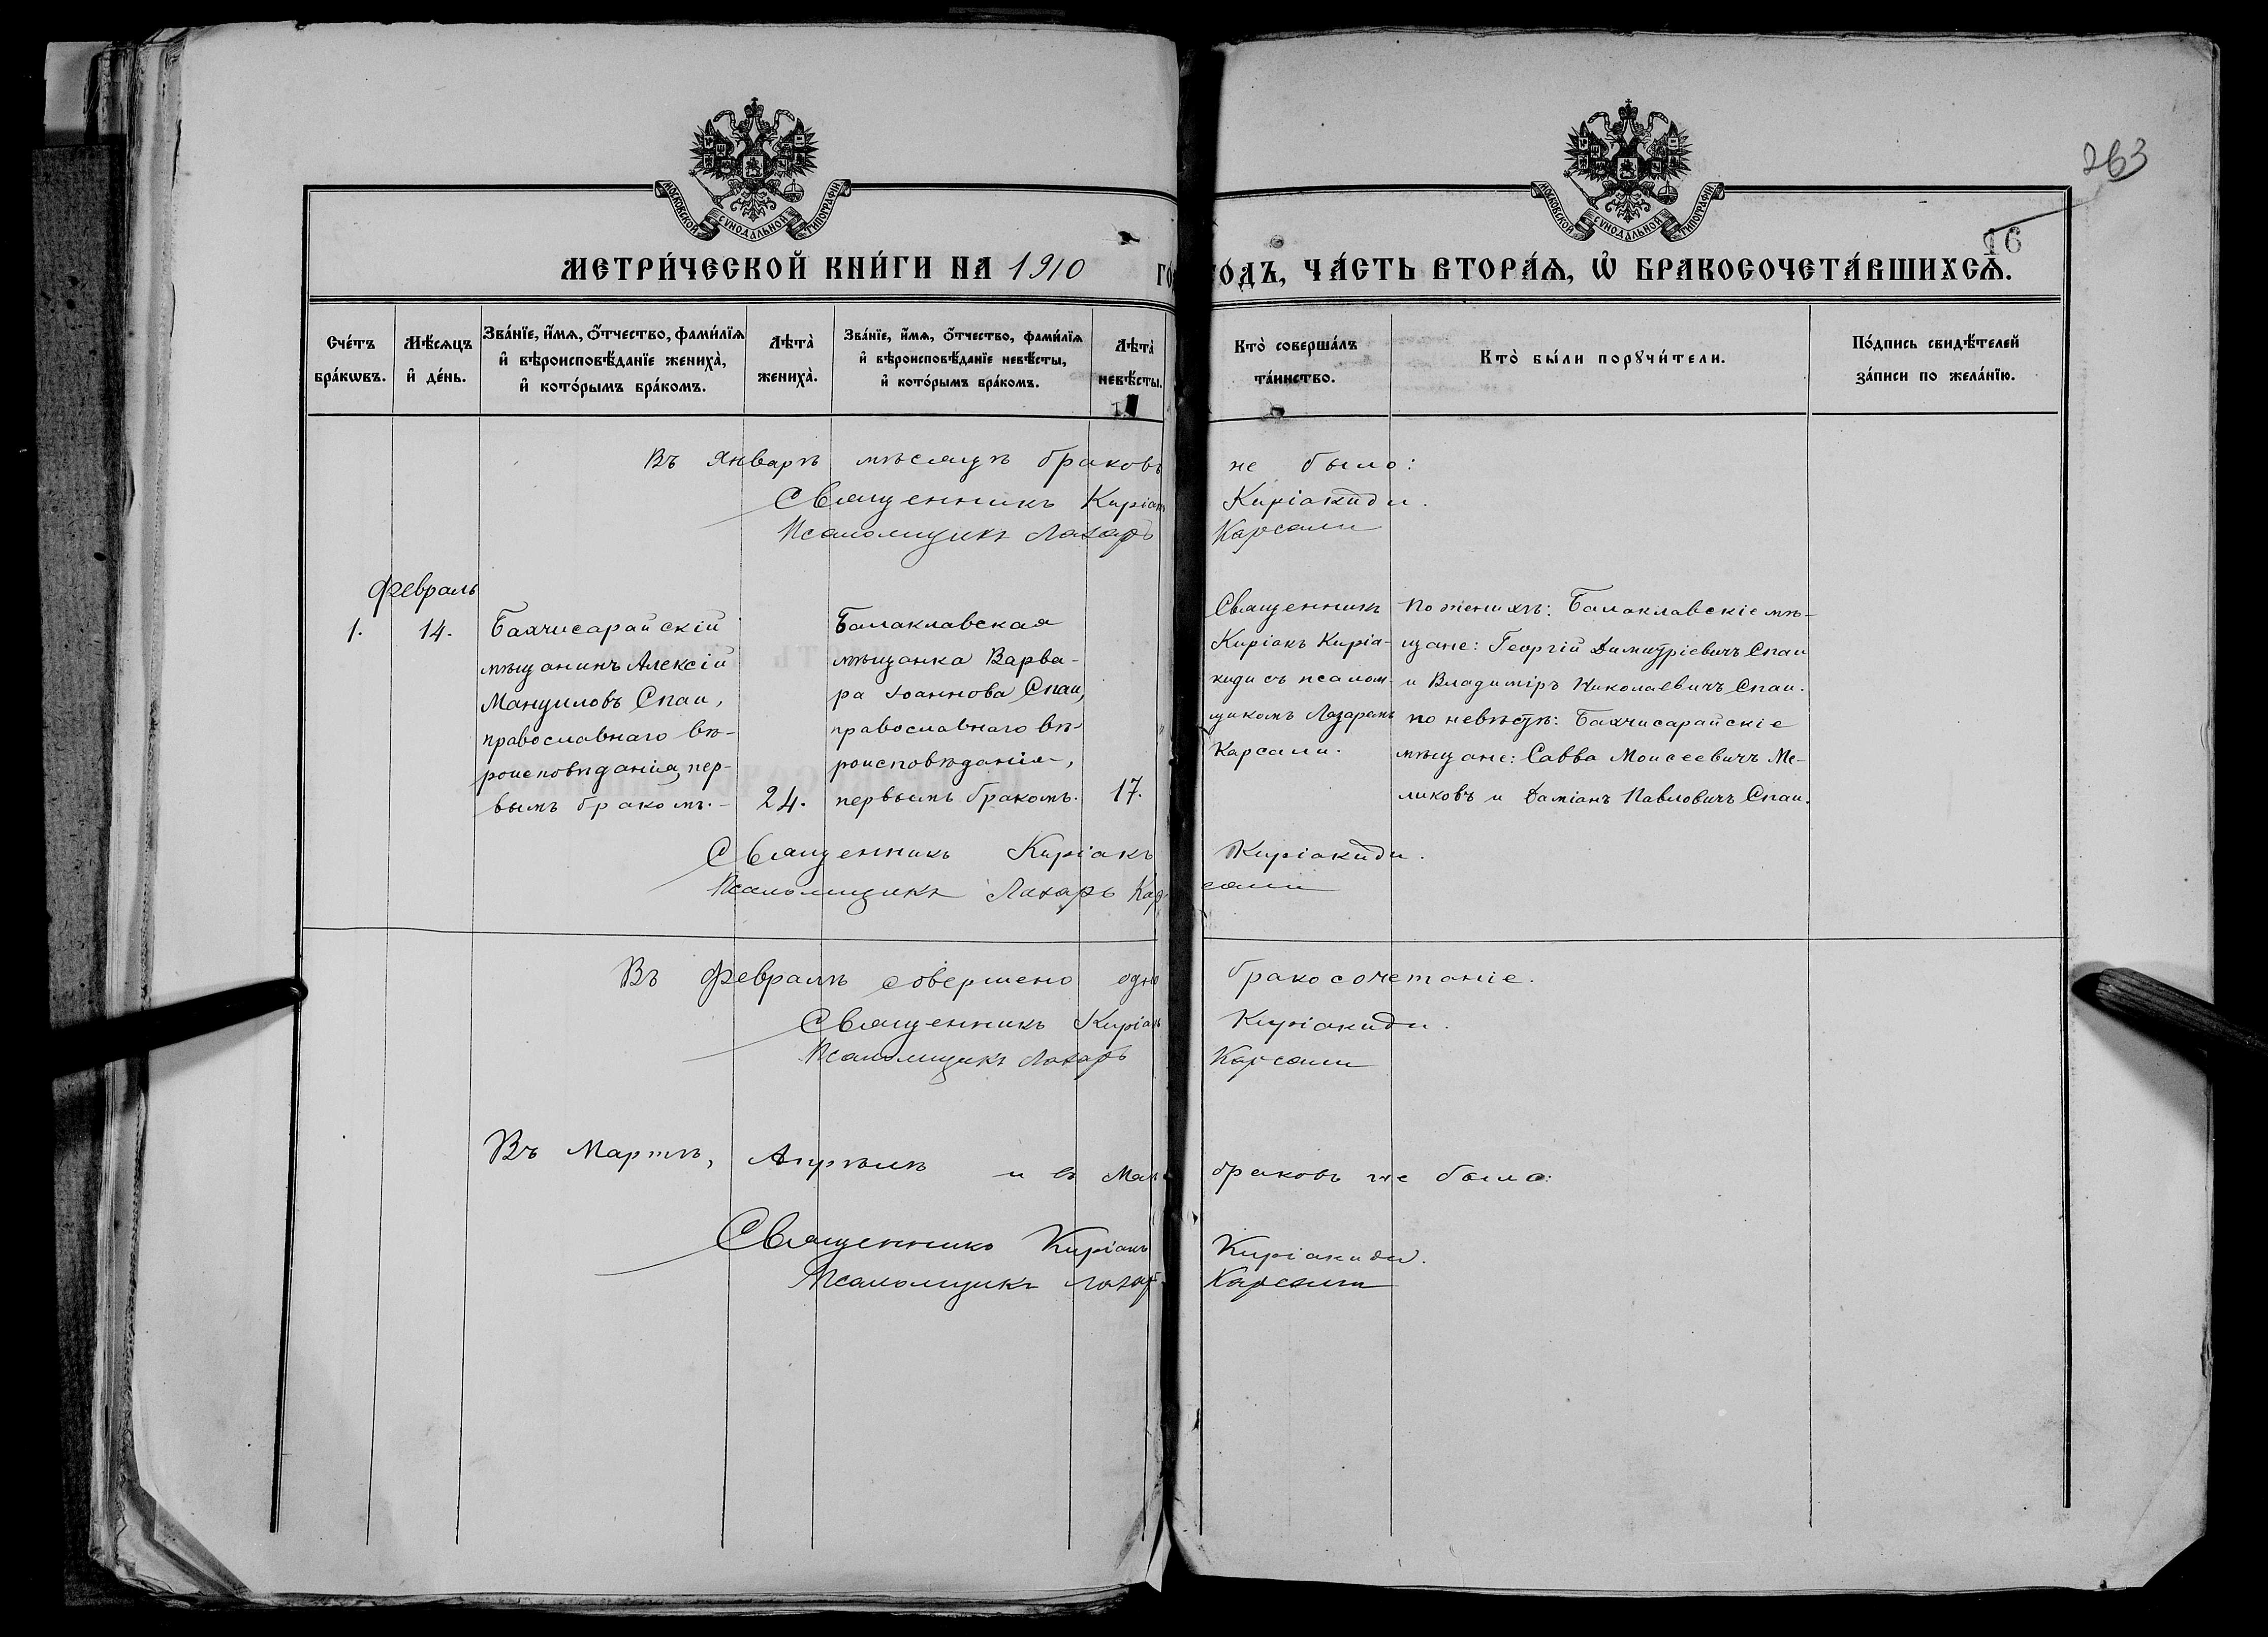 263
16
МОСКОВСКОЙ СѴНОДАЛЬНОЙ ТИПОГРАФІИ
МОСКОВСКОЙ СѴНОДАЛЬНОЙ ТИПОГРАФІИ
МЕТРИ́ЧЕСКОЙ КНИ́ГИ НА 1910 ГО́ДЪ, ЧА́СТЬ ВТОРА́Ѧ, Ѽ БРАКОСОЧЕТА́ВШИХСѦ.
Сче́тъ бра́кѡвъ.
Мѣ́сѧцъ и҆ де́нь.
Зва́нїе, и҆́мѧ, ѻ҆́тчество, фами́лїѧ и҆ вѣроисповѣ́данїе жениха̀, и҆ кото́рымъ бра́комъ.
Лѣта̀ жениха̀.
Зва́нїе, и҆́мѧ, ѻ҆́тчество, фами́лїѧ и҆ вѣроисповѣ́данїе невѣ́сты, и҆ кото́рымъ бра́комъ.
Лѣта̀ невѣ́сты.
Кто̀ соверша́лъ та́инство.
Кто̀ бы́ли порꙋчи́тели.
По́дпись свидѣ́телей за́писи по жела́нїю.
Въ Январѣ мѣсяцѣ браковъ не было:
Священникъ Киріакъ Киріакиди.
Псаломщикъ Лазарь Карсали
Февраль
1.
14.
Бахчисарайскій
мѣщанинъ Алексій
Мануиловъ Спаи,
православнаго вѣ-
роисповѣданія, пер-
вымъ бракомъ.-
24.
Балаклавская
мѣщанка Варва-
ра Іоаннова Спаи,
православнаго вѣ-
роисповѣданія,
первымъ бракомъ.
17.
Священникъ
Киріакъ Киріа-
киди съ псалом-
щикомъ Лазаремъ
Карсали.
По женихѣ: Балаклавскіе мѣ-
щане: Георгій Димитріевичъ Спаи
и Владиміръ Николаевичъ Спаи.
по невѣстѣ: Бахчисарайскіе
мѣщане: Савва Моисеевичъ Ме-
ликовъ и Даміанъ Павловичъ Спаи.
Священникъ Киріакъ Киріакиди.
Псаломщикъ Лазарь Карсали
Въ Февралѣ совершено одно бракосочетаніе.
Священникъ Киріакъ Киріакиди.
Псаломщикъ Лазарь Карсали
Въ Мартѣ, Апрѣлѣ и въ Маѣ браковъ не было:
Священникъ Киріакъ Киріакиди.
Псаломщикъ Лазарь Карсали